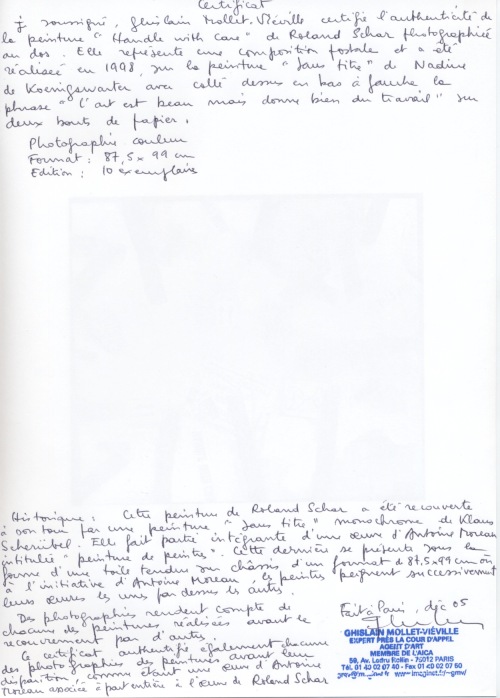 Certificat
Je soussigné, Ghislain Mollet-Viéville certifie l'authenticité de
la peinture "Handle with Care" de Roland Schär photographiée
au dos. Elle représente une composition postale et a été
réalisée en 1998, sur la peinture "Sans titre" de Nadine
de Koenigswarter avec collé dessus en bas à gauche la
phrase "l'art est beau mais donne bien du travail" sur
deux bouts de papier.
Photographie couleur
Format : 87,5 x 99 cm
Edition : 10 exemplaires
Historique : Cette peinture de Roland Schär a été recouverte
à son tour par une peinture "Sans titre" monochrome de Klaus
Scherübel. Elle fait partie intégrante d'une œuvre d'Antoine Moreau
intitulée "peinture de peintres". Cette dernière se présente sous la
forme d'une toile tendue sur châssis d'un format de 87,5x99 cm où
à l'initiative d'Antoine Moreau, les peintres peignent successivement
leurs œuvres les unes par dessus les autres.
Des photographies rendent compte de
chacune des peintures réalisées avant le
recouvrement par d'autres.
Ce certificat authentifie également chacune
des photographies des peintures avant leur
disparition, comme étant une œuvre d'Antoine
Moreau associée à part entière à l'œuvre de Roland Schär
Fait à Paris, déc 05
GHISLAIN MOLLET-VIÉVILLE
EXPERT PRÈS LA COUR D'APPEL
AGENT D'ART
MEMBRE DE L'AICA
59, Av. Ledru Rollin - 75012 PARIS
Tél. 01 43 02 07 40 - Fax 01 40 02 07 50